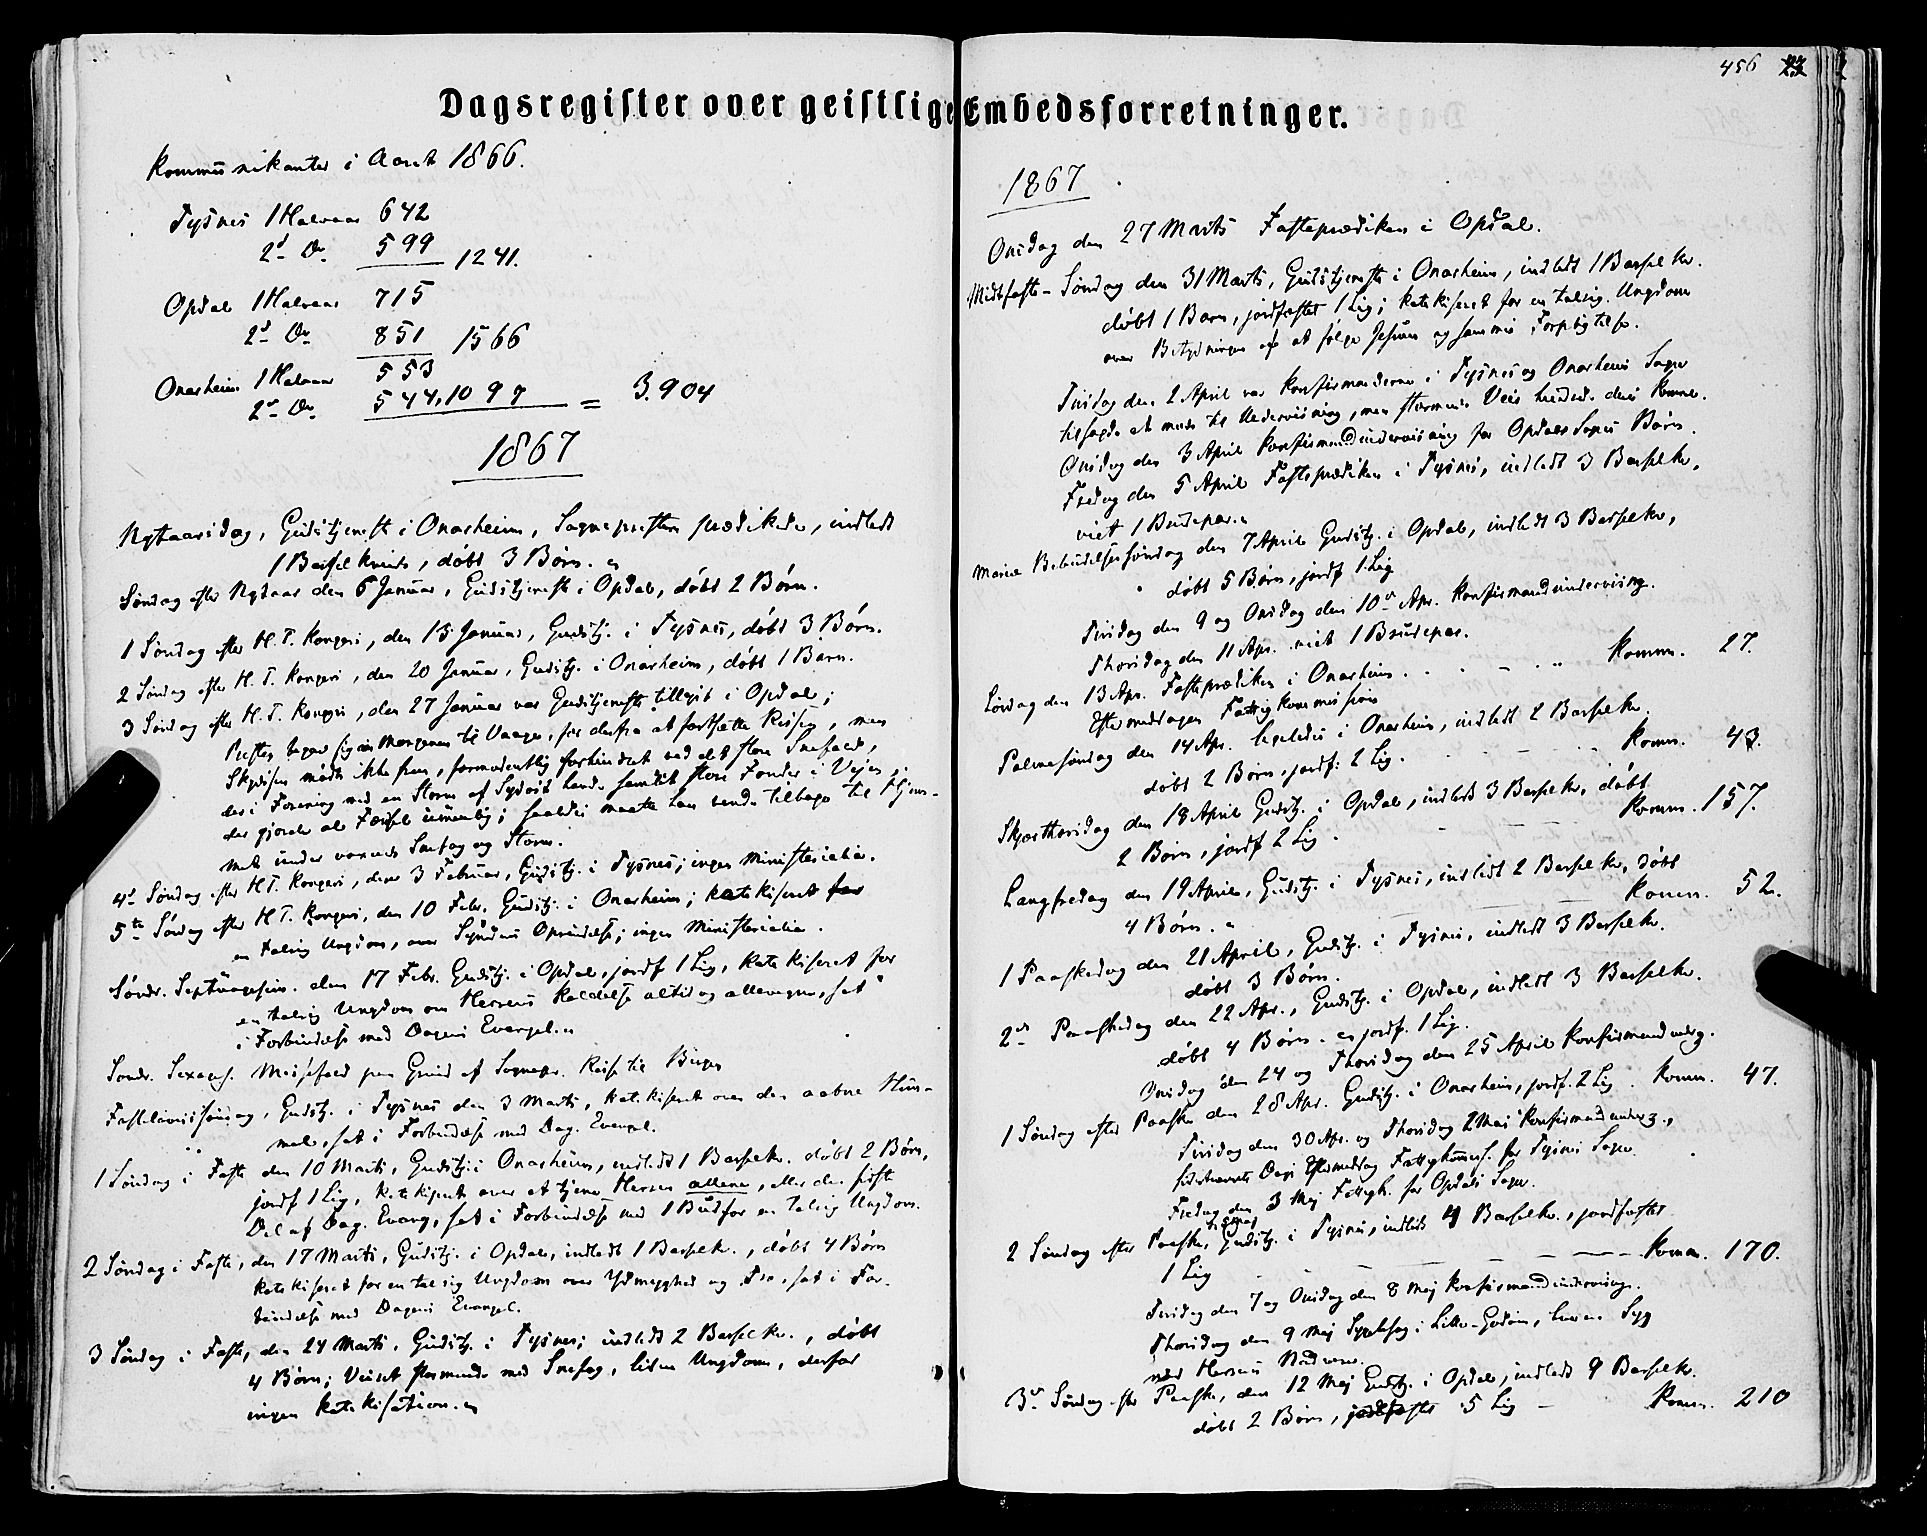 Dagsregister over geistlige Embedsforretninger.
Kommunikanter i Aaret 1866.
Tysnes 1 Halvaar 642
2d Do 599 1241.
Opdal 1 Halvaar 715
2d Do 851 1566
Onarheim 1 Halvaar 553
2d Do 544, 1097 = 3,904
1867
Nytaarsdag, Gudstjeneste i Onarheim, Sognepresten prædikede, indledt
1 Barselkvinde, døbt 3 Børn.
Søndag efter Nytaar den 6 Januar, Gudstjeneste i Opdal, døbt 2 Børn.
1 Søndag efter H. T. Kongers, den 13 Januar, Gudstj. i Tysnes, døbt 3 Børn.
2 Søndag efter H. T. Kongers, den 20 Januar, Gudstj. i Onarheim, døbt 1 Barn.
3 Søndag efter H. T. Kongers, den 27 Januar var Gudstjeneste tillyst i Opdal;
Presten begav sig om Morgenen til Vaage, for derfra at fortsætte Reisen, men
Skydsen mødte ikke frem, formodentlig forhindret ved det store Snefald,
der i Forening med en Storm af Sydost havde samlet store Fonder i Veien,
der gjorde al Færsel umulig; saaledes maatte han vende tilbage til Hjem-
met under voxende Snefog og Storm.
4de Søndag efter H. T. Kongers, den 3 Februar, Gudstj. i Tysnes; ingen Ministerialia.
5te Søndag efter H. T. Kongers, den 10 Febr. Gudstj. i Onarheim; katekiseret for
en talrig Ungdom, over Syndens Oprindelse; ingen Ministerialia.
Søndr. Septuagesim. den 17 Febr. Gudstj. i Opdal, jordf 1 Lig, katekiseret for
en talrig Ungdom om Herrens Kaldelse altid og allevegne, sat
i Forbindelse med Dagens Evangel.
Søndr. Sexages. Messefald paa Grund af Sognepr. Reise til Bergen
Fastelavnssøndag, Gudstj. i Tysnes den 3 Marts, katekiseret over den aabne Him-
mel, sat i Forbindelse med Dag. Evangel.
1 Søndag i Faste den 10 Marts, Gudstj. i Onarheim, indledt 1 Barselkv. døbt 2 Børn,
jordf 1 Lig, katekiseret over at tjene Herren allene, eller den sidste
Del af Dag. Evang, sat i Forbindelse med 1 Bud for en talrig Ungdom.
2 Søndag i Faste, den 17 Marts, Gudstj. i Opdal, indledt 1 Barselkv., døbt 4 Børn
katekiseret for en talrig Ungdom over Ydmyghed og Tro, sat i For-
bindelse med Dagens Evangel.
3 Søndag i Faste, den 24 Marts, Gudstj. i Tysnes; indledt 2 Barselkv., døbt
4 Børn; Veiret stormende med Snefog, liden Ungdom, derfor
ingen Katekisation.
456
1867
Onsdag den 27 Marts Fasteprædiken i Opdal.
Midtfaste-Søndag den 31 Marts, Gudstjeneste i Onarheim, indledt 1 Barselkv.
døbt 1 Barn, jordfæstet 1 Lig; katekiseret for en talrig Ungdom
over Betydningen af at følge Jesum og sammes Forpligtelse.
Tirsdag den 2 April var Konfirmanderne i Tysnes og Onarheims Sogne
tilsagte at møde til Undervisning, men stormende Veir hindrede deres Komme.
Onsdag den 3 April Konfirmandundervisning for Opdals Sogns Børn.
Fredag den 5 April Fasteprædiken i Tysnes, indledt 3 Barselkv,
viet 1 Brudepar.
Mariæ Bebudelses søndag den 7 April Gudstj. i Opdal, indledt 3 Barselkv,
døbt 5 Børn, jordf 1 Lig
Tirsdag den 9 og Onsdag den 10de Apr. Konfirmandundervisning.
Thorsdag den 11 Apr. viet 1 Brudepar.
Lørdag den 13 Apr. Fasteprædiken i Onarheim . . . Komm. 27.
Eftermiddagen Fattigkommission
Palmesøndag den 14 Apr. ligeledes i Onarheim, indledt 2 Barselkv.
døbt 2 Børn, jordf: 2 Lig. Komm. 43.
Skjærthorsdag den 18 April Gudstj. i Opdal, indledt 3 Barselkv, døbt
2 Børn, jordf 2 Lig. Komm. 157.
Langfredag den 19 April, Gudstj. i Tysnes, indledt 2 Barselkv, døbt
4 Børn. Komm. 52.
1 Paaskedag den 21 April, Gudstj. i Tysnes, indledt 3 Barselkv.
døbt 3 Børn.
2den Paaskedag den 22 Apr., Gudstj. i Opdal, indledt 3 Barselkv.
døbt 4 Børn. jordf. 1 Lig.
Onsdag den 24 og Thorsdag den 25 April Konfirmandundervg.
1 Søndag efter Paaske den 28 Apr. Gudstj. i Onarheim, jordf. 2 Lig. Komm. 47.
Tirsdag den 30 Apr. og Thorsdag 2 Mai Konfirmandunderv.,
sidstnævnte Dags Eftermiddag Fattigkommiss. for Tysnes Sogn.
Fredag den 3 Mai Fattigk. for Opdals Sogn.
2 Søndag efter Paaske, Gudstj. i Tysnes, indledt 4 Barselkv., jordfæstet
1 Lig Komm. 170.
Tirsdag den 7 og Onsdag den 8 Maj Konfirmandundervisning.
Thorsdag den 9 Maj Sygebesøg i Lille-Godøn, en Syg
med Herrens Nadvere.
3de Søndag efter Paaske, den 12 Maj Gudstj. i Opdal, indledt 9 Barselkv.
døbt 2 Børn, jordfæstet 5 Lig Komm. 210